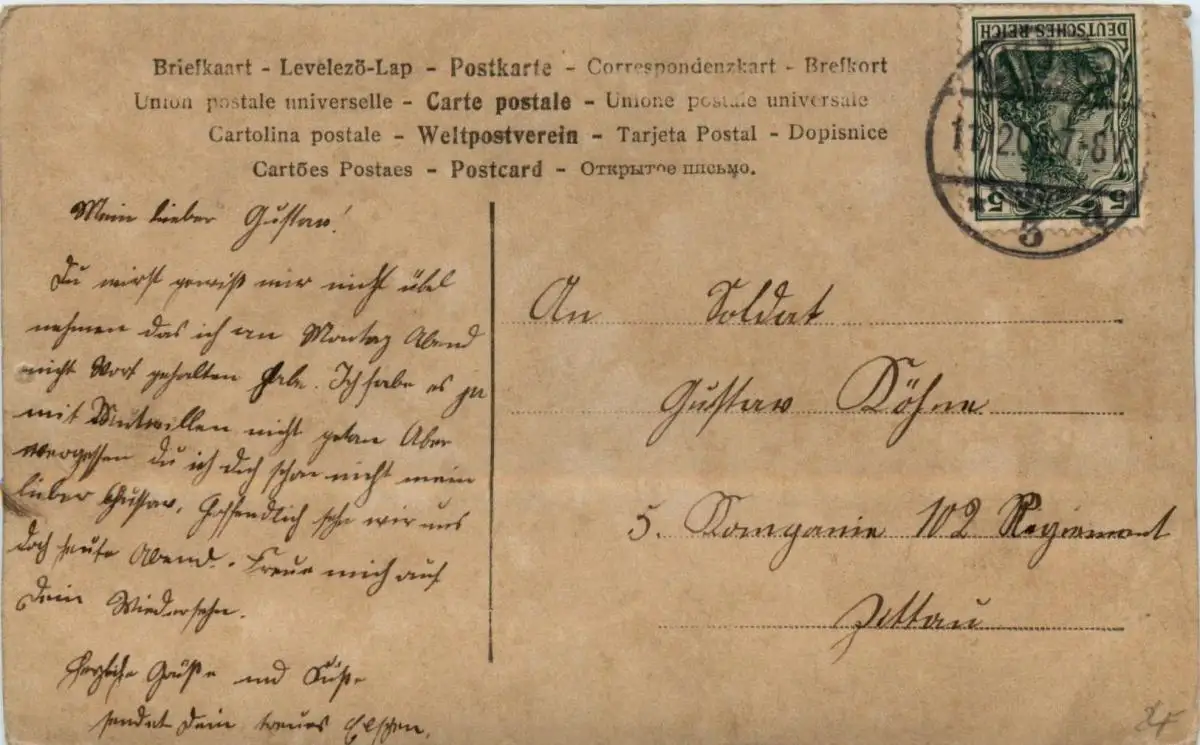 Briefkaart - Levelező-Lap - Postkarte - Correspondenzkart - Brefkort
Union postale universelle - Carte postale - Unione postale universale
Cartolina postale - Weltpostverein - Tarjeta Postal - Dopisnice
Cartões Postaes - Postcard - Открытое письмо.
DEUTSCHES REICH
5 5
7-8V
3
Mein lieber Gustav!
Du wirst gewiß mir nicht übel
nehmen das ich an Montag Abend
nicht Wort gehalten habe. Ich habe es ja
mit Mutwillen nicht getan Aber
vergessen du ich dich schon nicht mein
lieber Gustav, hoffendlich sehn wir uns
doch heute Abend. Freue mich auf
Dein Wiedersehn.
Herzliche Grüße und Küße
sendet Dein treues Elschen.
An Soldat
Gustav Köhne
5. Kompanie 102 Regiement
Zittau